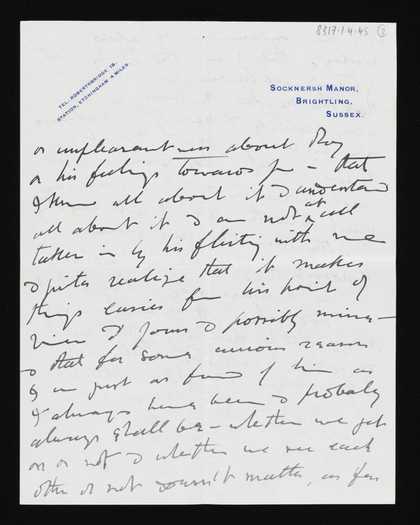 8317.1.4.45 ③
TEL. ROBERTSBRIDGE 19.
STATION, ETCHINGHAM 4 MILES.
SOCKNERSH MANOR,
BRIGHTLING,
SUSSEX.
or unpleasantness about Roy
or his feelings towards you – that
I know all about it & understand
all about it & am not at all
taken in by his flirting with me
& quite realize that it makes
things easier from his point of
view & yours & possibly mine –
& that for some curious reason
I am just as fond of him as
I always have been & probably
always shall be – whether we get
on or not & whether we see each
other or not doesn't matter, as far